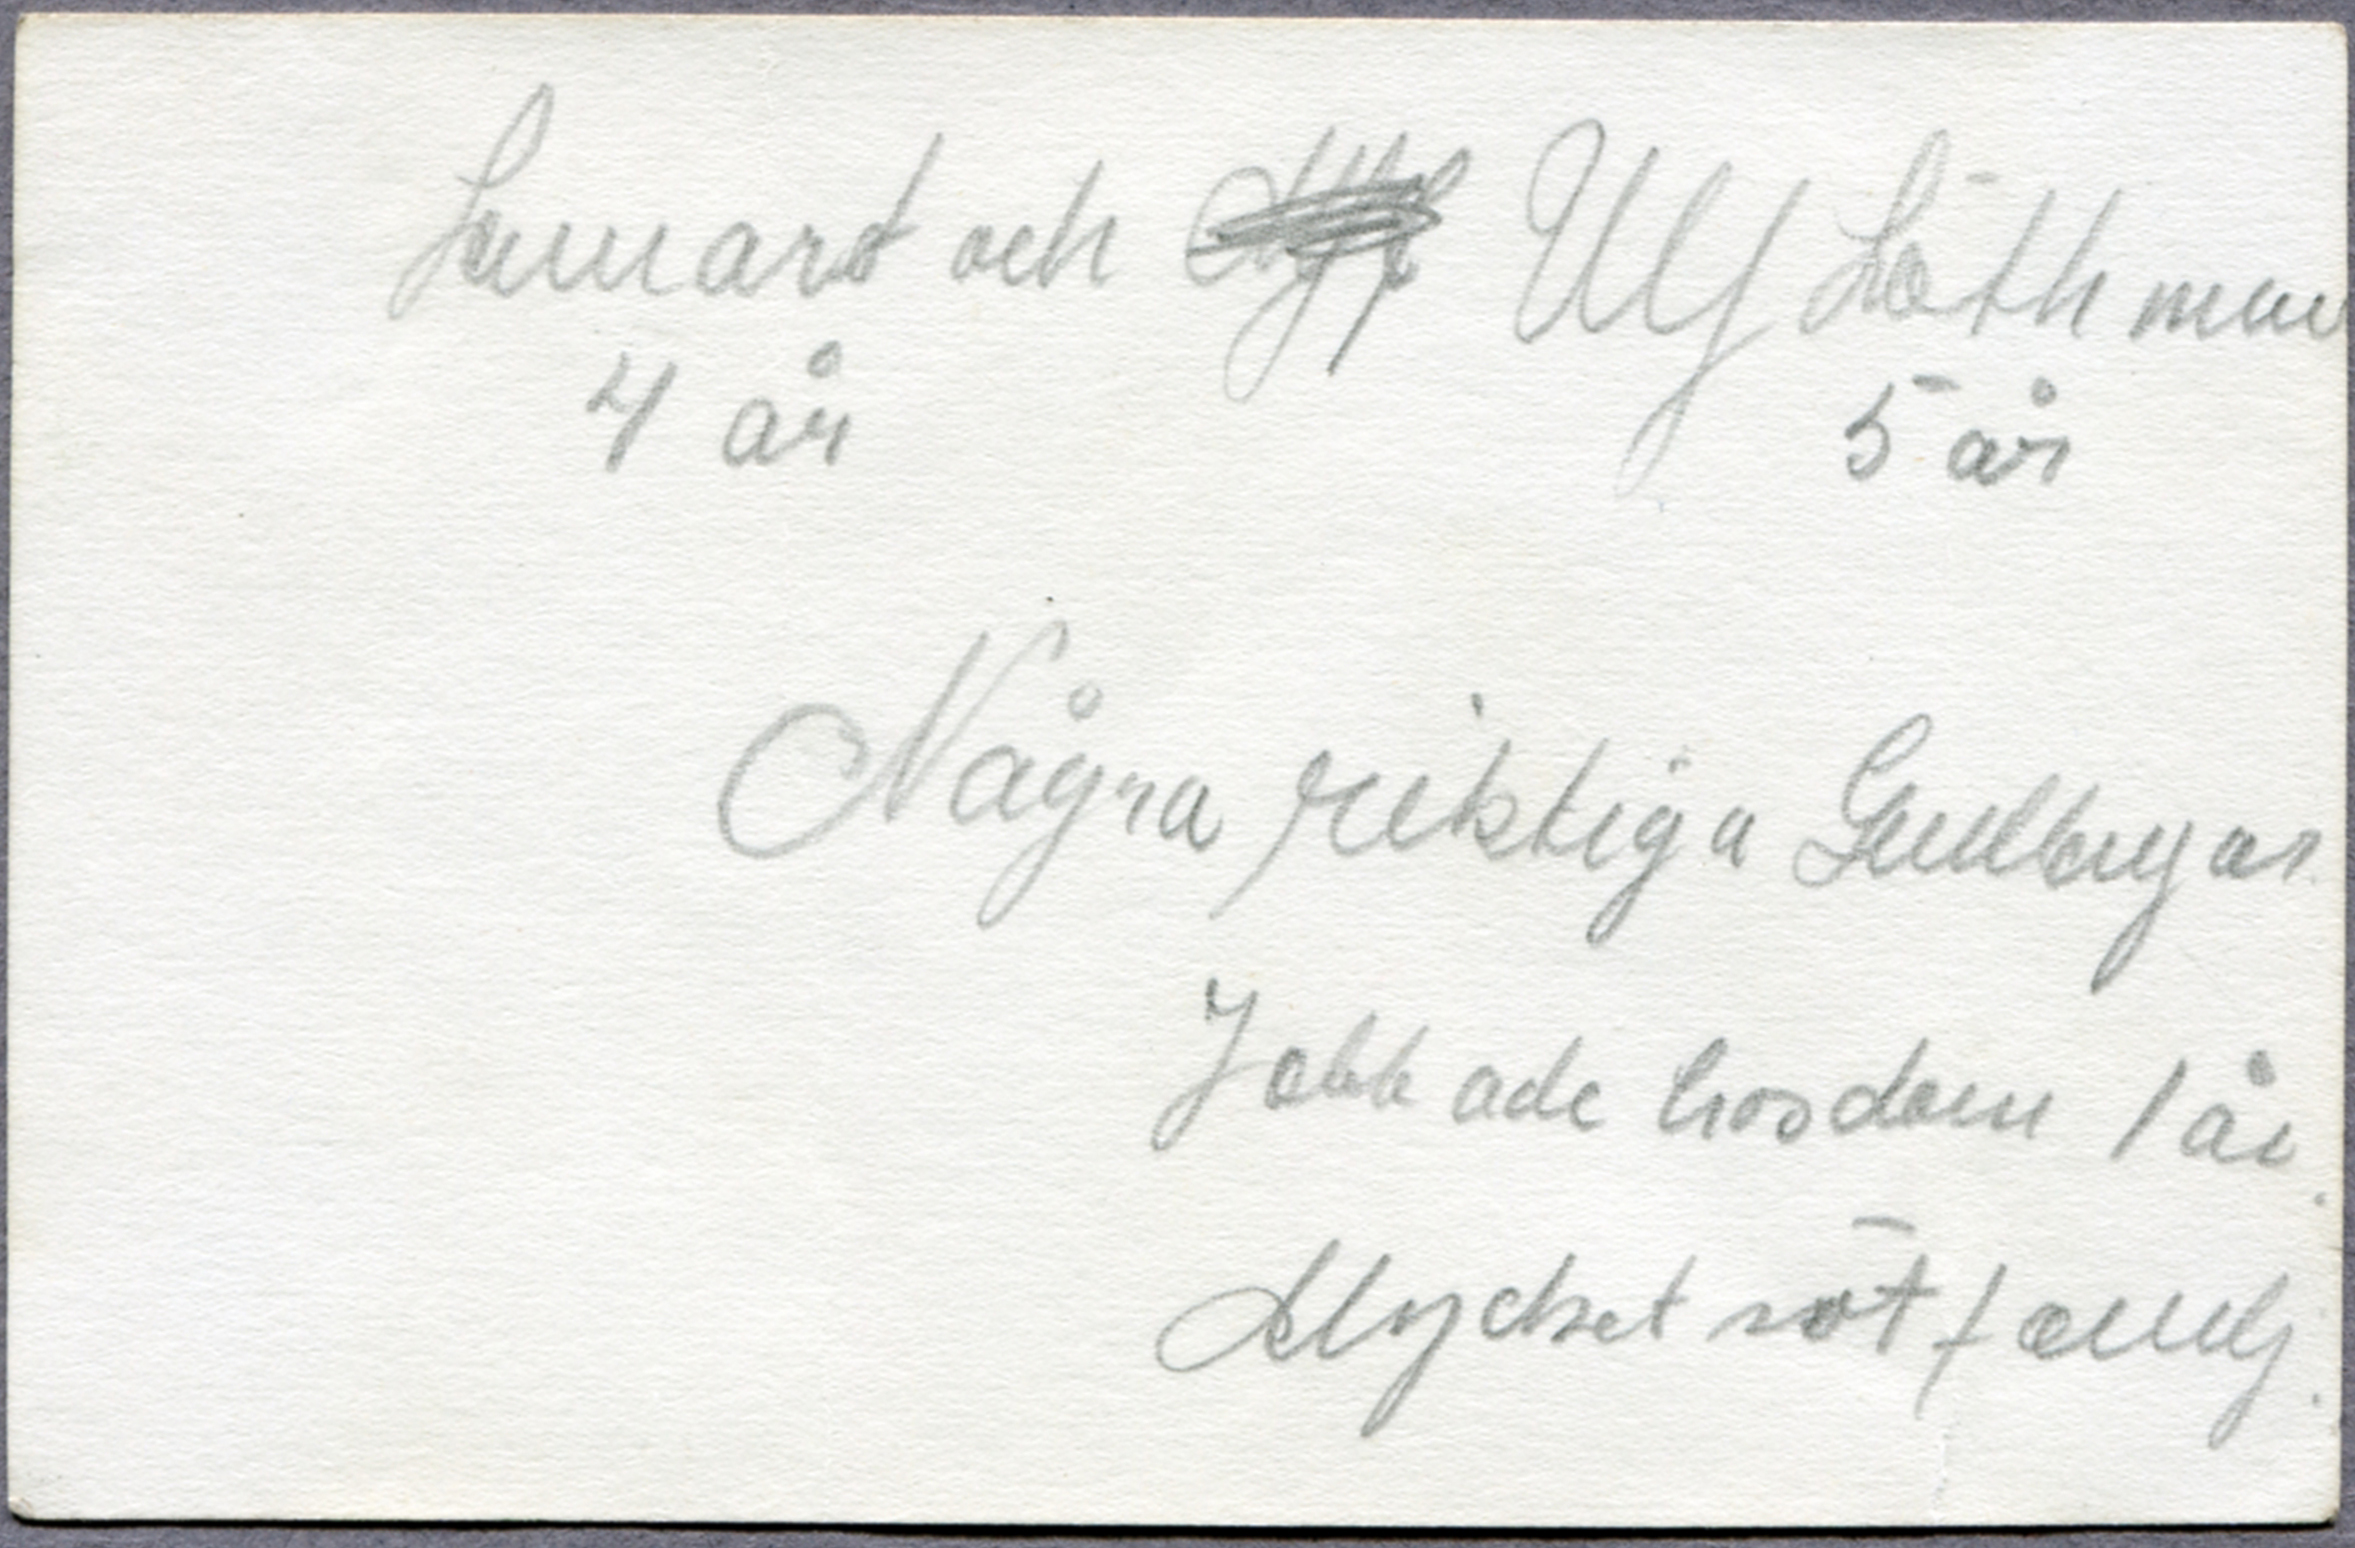 Lennart och Ulf Löthman
4 år 5 år
Några riktiga Gullbryar.
Jobbade hos dem 1 år.
Mycket söt familj.